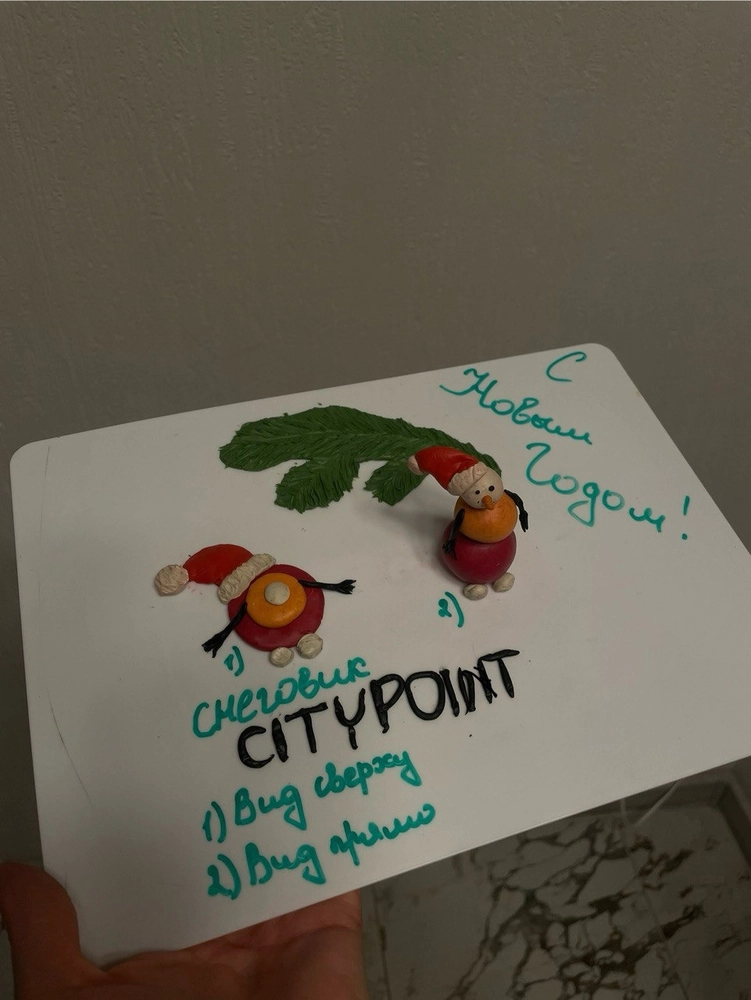 С
Новым
Годом!
2)
1)
снеговик
CITYPOINT
1) Вид сверху
2) Вид прямо